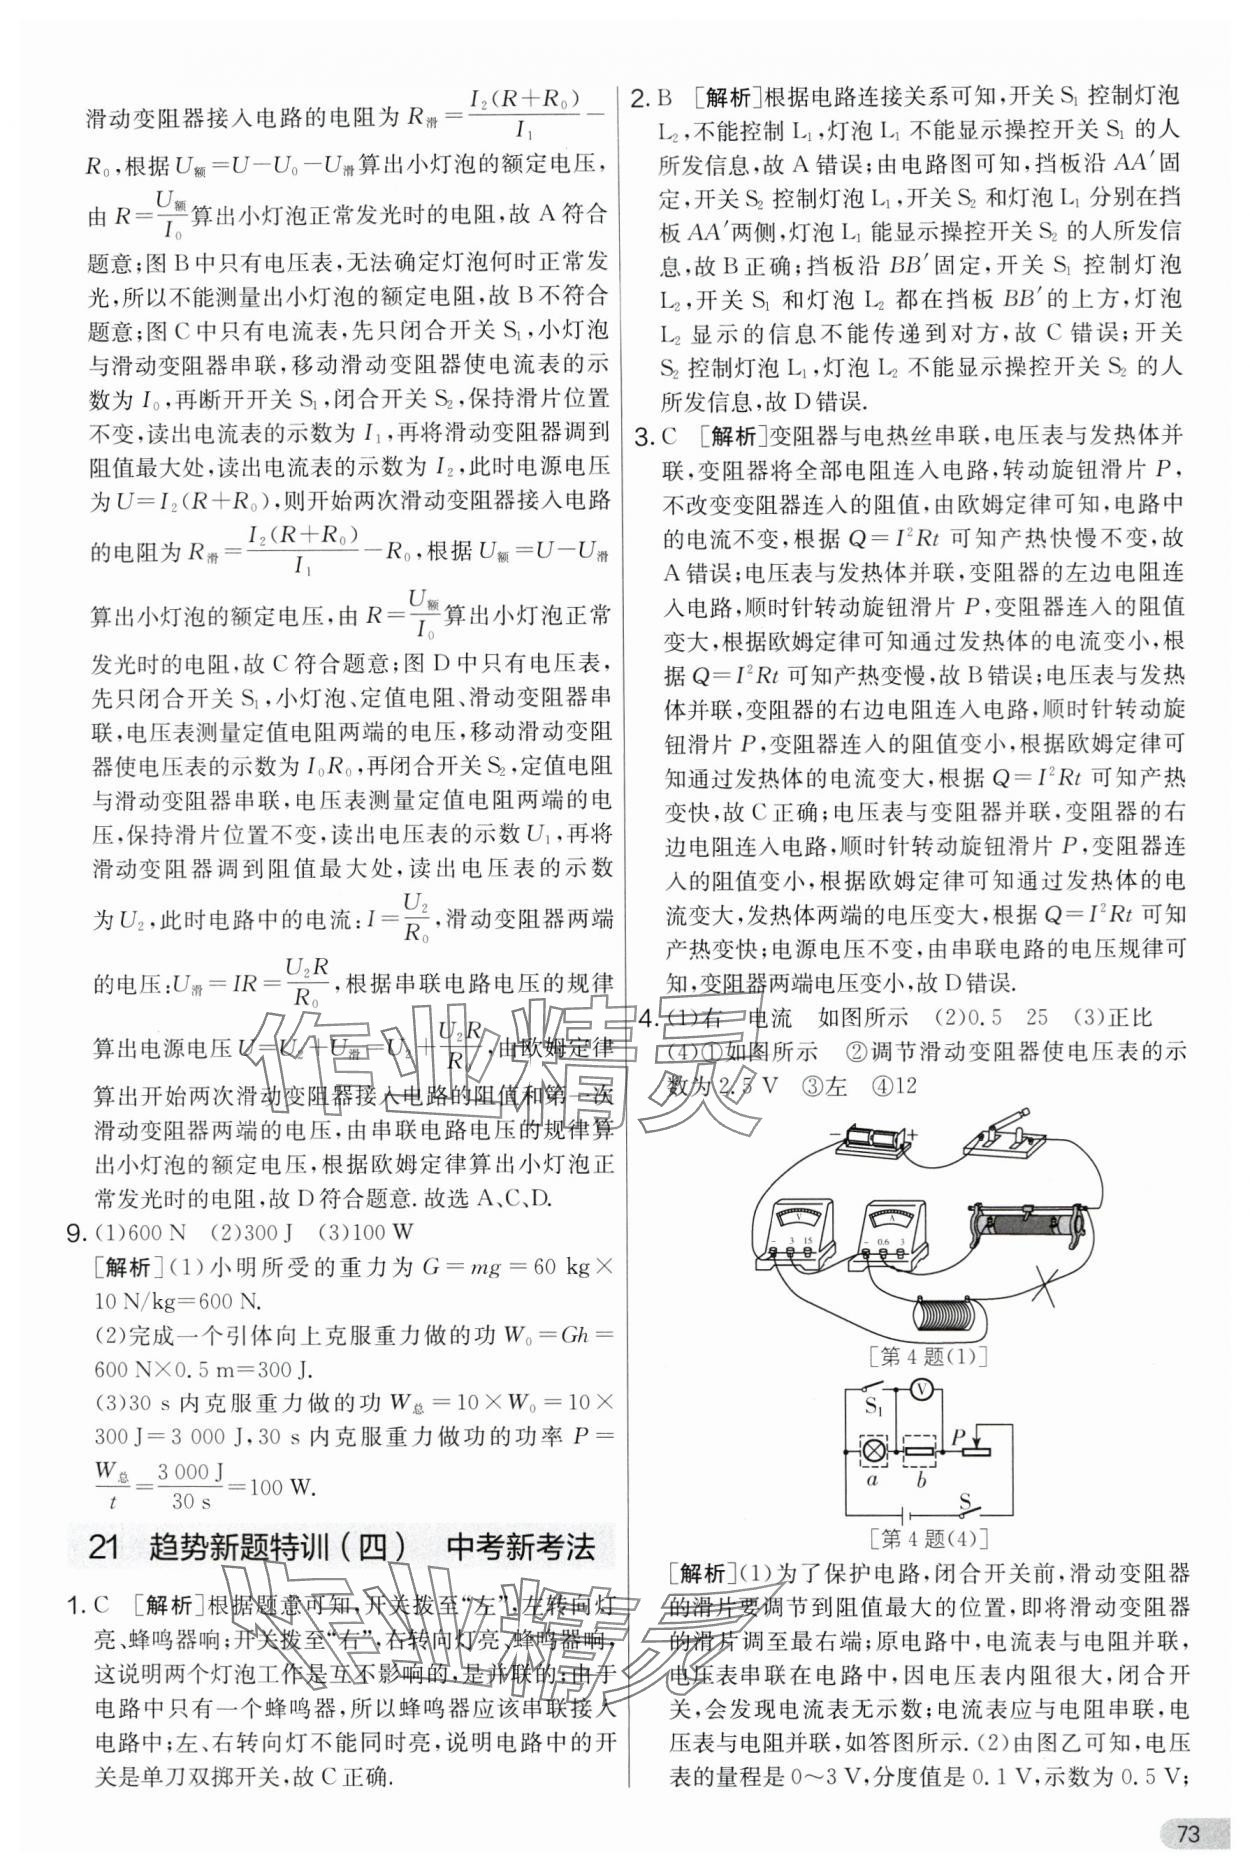 滑动变阻器接入电路的电阻为 R滑=I₂(R+R₀)/I₁−
R₀,根据 U额=U−U₀−U滑算出小灯泡的额定电压,
由 R=U额/I₀算出小灯泡正常发光时的电阻,故 A 符合
题意;图 B 中只有电压表,无法确定灯泡何时正常发
光,所以不能测量出小灯泡的额定电压,故 B 不符合
题意;图 C 中只有电流表,先只闭合开关 S₁,小灯泡
与滑动变阻器串联,移动滑动变阻器使电流表的示
数为 I₀,再断开开关 S₁,闭合开关 S₂,保持滑片位置
不变,读出电流表的示数为 I₁,再将滑动变阻器调到
阻值最大处,读出电流表的示数为 I₂,此时电源电压
为 U=I₂(R+R₀),则开始两次滑动变阻器接入电路
的电阻为 R滑=I₂(R+R₀)/I₁−R₀,根据 U额=U−U滑
算出小灯泡的额定电压,由 R=U额/I₀算出小灯泡正常
发光时的电阻,故 C 符合题意;图 D 中只有电压表,
先只闭合开关 S₁,小灯泡、定值电阻、滑动变阻器串
联,电压表测量定值电阻两端的电压,移动滑动变阻
器使电压表的示数为 I₀R₀,再闭合开关 S₂,定值电阻
与滑动变阻器串联,电压表测量定值电阻两端的电
压,保持滑片位置不变,读出电压表的示数 U₁,再将
滑动变阻器调到阻值最大处,读出电压表的示数
为 U₂,此时电路中的电流:I=U₂/R₀,滑动变阻器两端
的电压:U滑=IR=U₂R/R₀,根据串联电路电压的规律
算出电源电压 U=U₂+U滑=U₂+U₂R/R₀,由欧姆定律
算出开始两次滑动变阻器接入电路的阻值和第一次
滑动变阻器两端的电压,由串联电路电压的规律算
出小灯泡的额定电压,根据欧姆定律算出小灯泡正
常发光时的电阻,故 D 符合题意.故选 A、C、D.
9. (1)600 N (2)300 J (3)100 W
[解析](1)小明所受的重力为 G=mg=60 kg×
10 N/kg=600 N.
(2)完成一个引体向上克服重力做的功 W₀=Gh=
600 N×0.5 m=300 J.
(3)30 s 内克服重力做的功 W总=10×W₀=10×
300 J=3 000 J,30 s 内克服重力做功的功率 P=
W总/t=3 000 J/30 s=100 W.
21 趋势新题特训(四) 中考新考法
1. C [解析]根据题意可知,开关拨至“左”,左转向灯
亮、蜂鸣器响;开关拨至“右”,右转向灯亮、蜂鸣器响,
这说明两个灯泡工作是互不影响的,是并联的;由于
电路中只有一个蜂鸣器,所以蜂鸣器应该串联接入
电路中;左、右转向灯不能同时亮,说明电路中的开
关是单刀双掷开关,故 C 正确.
2. B [解析]根据电路连接关系可知,开关 S₁ 控制灯泡
L₂,不能控制 L₁,灯泡 L₁ 不能显示操控开关 S₁ 的人
所发信息,故 A 错误;由电路图可知,挡板沿 AA′固
定,开关 S₂ 控制灯泡 L₁,开关 S₂ 和灯泡 L₁ 分别在挡
板 AA′两侧,灯泡 L₁ 能显示操控开关 S₂ 的人所发信
息,故 B 正确;挡板沿 BB′固定,开关 S₁ 控制灯泡
L₂,开关 S₁ 和灯泡 L₂ 都在挡板 BB′的上方,灯泡
L₂ 显示的信息不能传递到对方,故 C 错误;开关
S₂ 控制灯泡 L₁,灯泡 L₂ 不能显示操控开关 S₂ 的人
所发信息,故 D 错误.
3. C [解析]变阻器与电热丝串联,电压表与发热体并
联,变阻器将全部电阻连入电路,转动旋钮滑片 P,
不改变变阻器连入的阻值,由欧姆定律可知,电路中
的电流不变,根据 Q=I²Rt 可知产热快慢不变,故
A 错误;电压表与发热体并联,变阻器的左边电阻连
入电路,顺时针转动旋钮滑片 P,变阻器连入的阻值
变大,根据欧姆定律可知通过发热体的电流变小,根
据 Q=I²Rt 可知产热变慢,故 B 错误;电压表与发热
体并联,变阻器的右边电阻连入电路,顺时针转动旋
钮滑片 P,变阻器连入的阻值变小,根据欧姆定律可
知通过发热体的电流变大,根据 Q=I²Rt 可知产热
变快,故 C 正确;电压表与变阻器并联,变阻器的右
边电阻连入电路,顺时针转动旋钮滑片 P,变阻器连
入的阻值变小,根据欧姆定律可知通过发热体的电
流变大,发热体两端的电压变大,根据 Q=I²Rt 可知
产热变快;电源电压不变,由串联电路的电压规律可
知,变阻器两端电压变小,故 D 错误.
4. (1)右 电流 如图所示 (2)0.5 25 (3)正比
(4)①如图所示 ②调节滑动变阻器使电压表的示
数为 2.5 V ③左 ④12
− +
V A
− 3 15 − 0.6 3
[第 4 题(1)]
V
S₁
P
a b
S
[第 4 题(4)]
[解析](1)为了保护电路,闭合开关前,滑动变阻器
的滑片要调节到阻值最大的位置,即将滑动变阻器
的滑片调至最右端;原电路中,电流表与电阻并联,
电压表串联在电路中,因电压表内阻很大,闭合开
关,会发现电流表无示数;电流表应与电阻串联,电
压表与电阻并联,如答图所示.(2)由图乙可知,电压
表的量程是 0~3 V,分度值是 0.1 V,示数为 0.5 V;
73
作业精灵
作业精灵